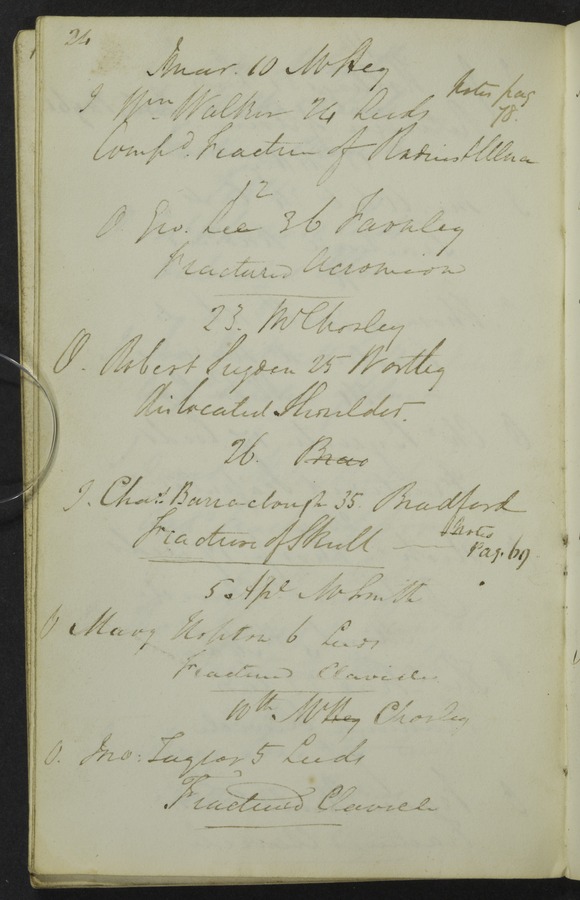 24
10 Mr Hey
I Wm Walker 24 Leeds
Notes pag
78.
Compd. Fracture of Radius & Ulna
12
O. Geo. Lee 36 Farnley
Fractured Acromion
23. Mr Chorley
O. Robert Sugden 25 Wortley
dislocated Shoulder.
26.
I. Chas. Barraclough 35. Bradford
Fracture of Skull
Notes
Pag. 69
5. Apl Mr Smith
O Mary Hopton 6 Leeds
Fractured Clavicle
10th. Mr Hey Chorley
O. Jno: Taylor 5 Leeds
Fractured Clavicle